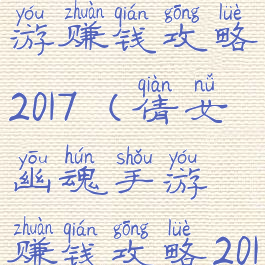 yóu zhuàn qián gōng lüè
游赚钱攻略
qiàn nǚ
2017（倩女
yōu hún shǒu yóu
幽魂手游
zhuàn qián gōng lüè
赚钱攻略201